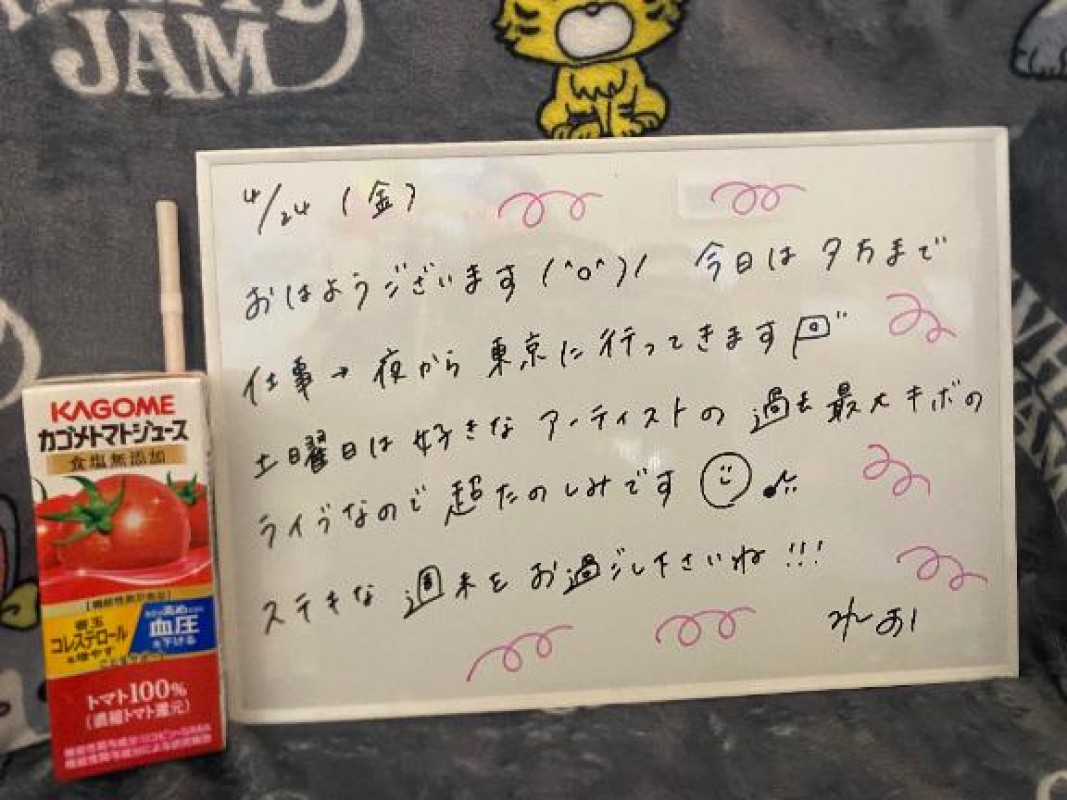 JAM
4/24 (金)
おはようございます(^o^)/ 今日は夕方まで
仕事→夜から東京に行ってきます
土曜日は好きなアーティストの過去最大キボの
ライブなので超たのしみです
ステキな週末をお過ごし下さいね!!!
KAGOME
カゴメトマトジュース
食塩無添加
[機能性表示食品]
善玉
コレステロール
を増やす
高め
血圧
を下げる
トマト100%
(濃縮トマト還元)